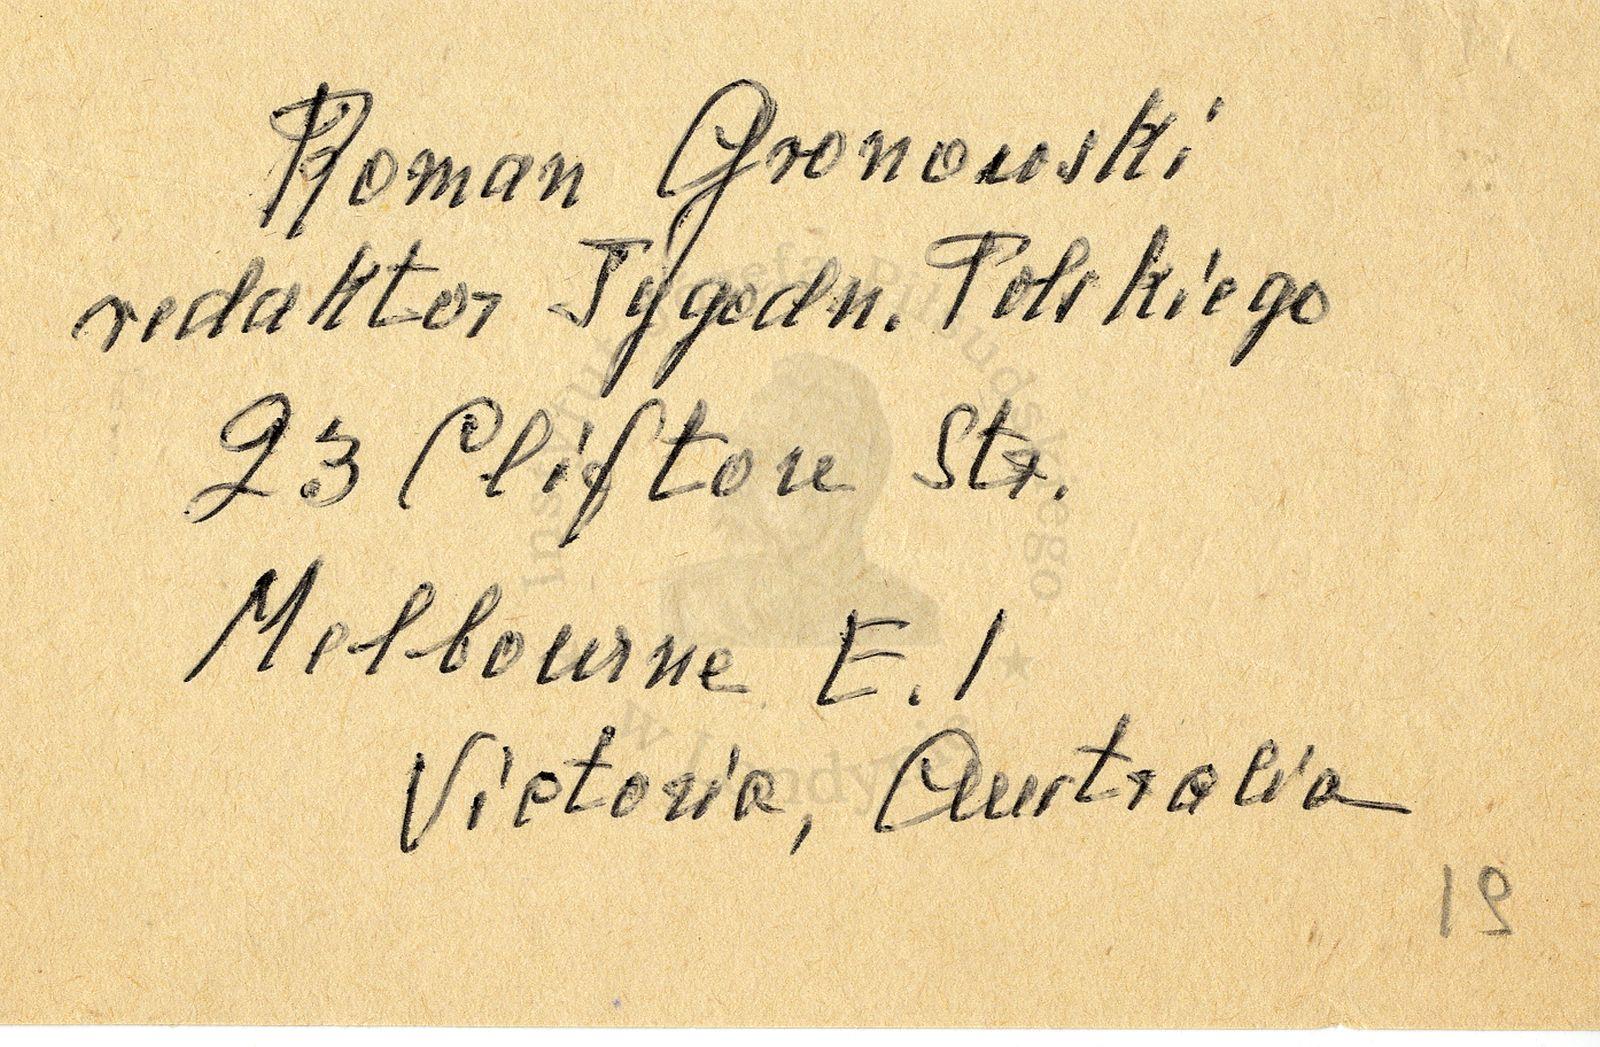 Roman Gronowski
redaktor Tygodn. Polskiego
23 Clifton Str.
Melbourne E. 1
Victoria, Australia
Instytut Józefa Piłsudskiego
w Londynie